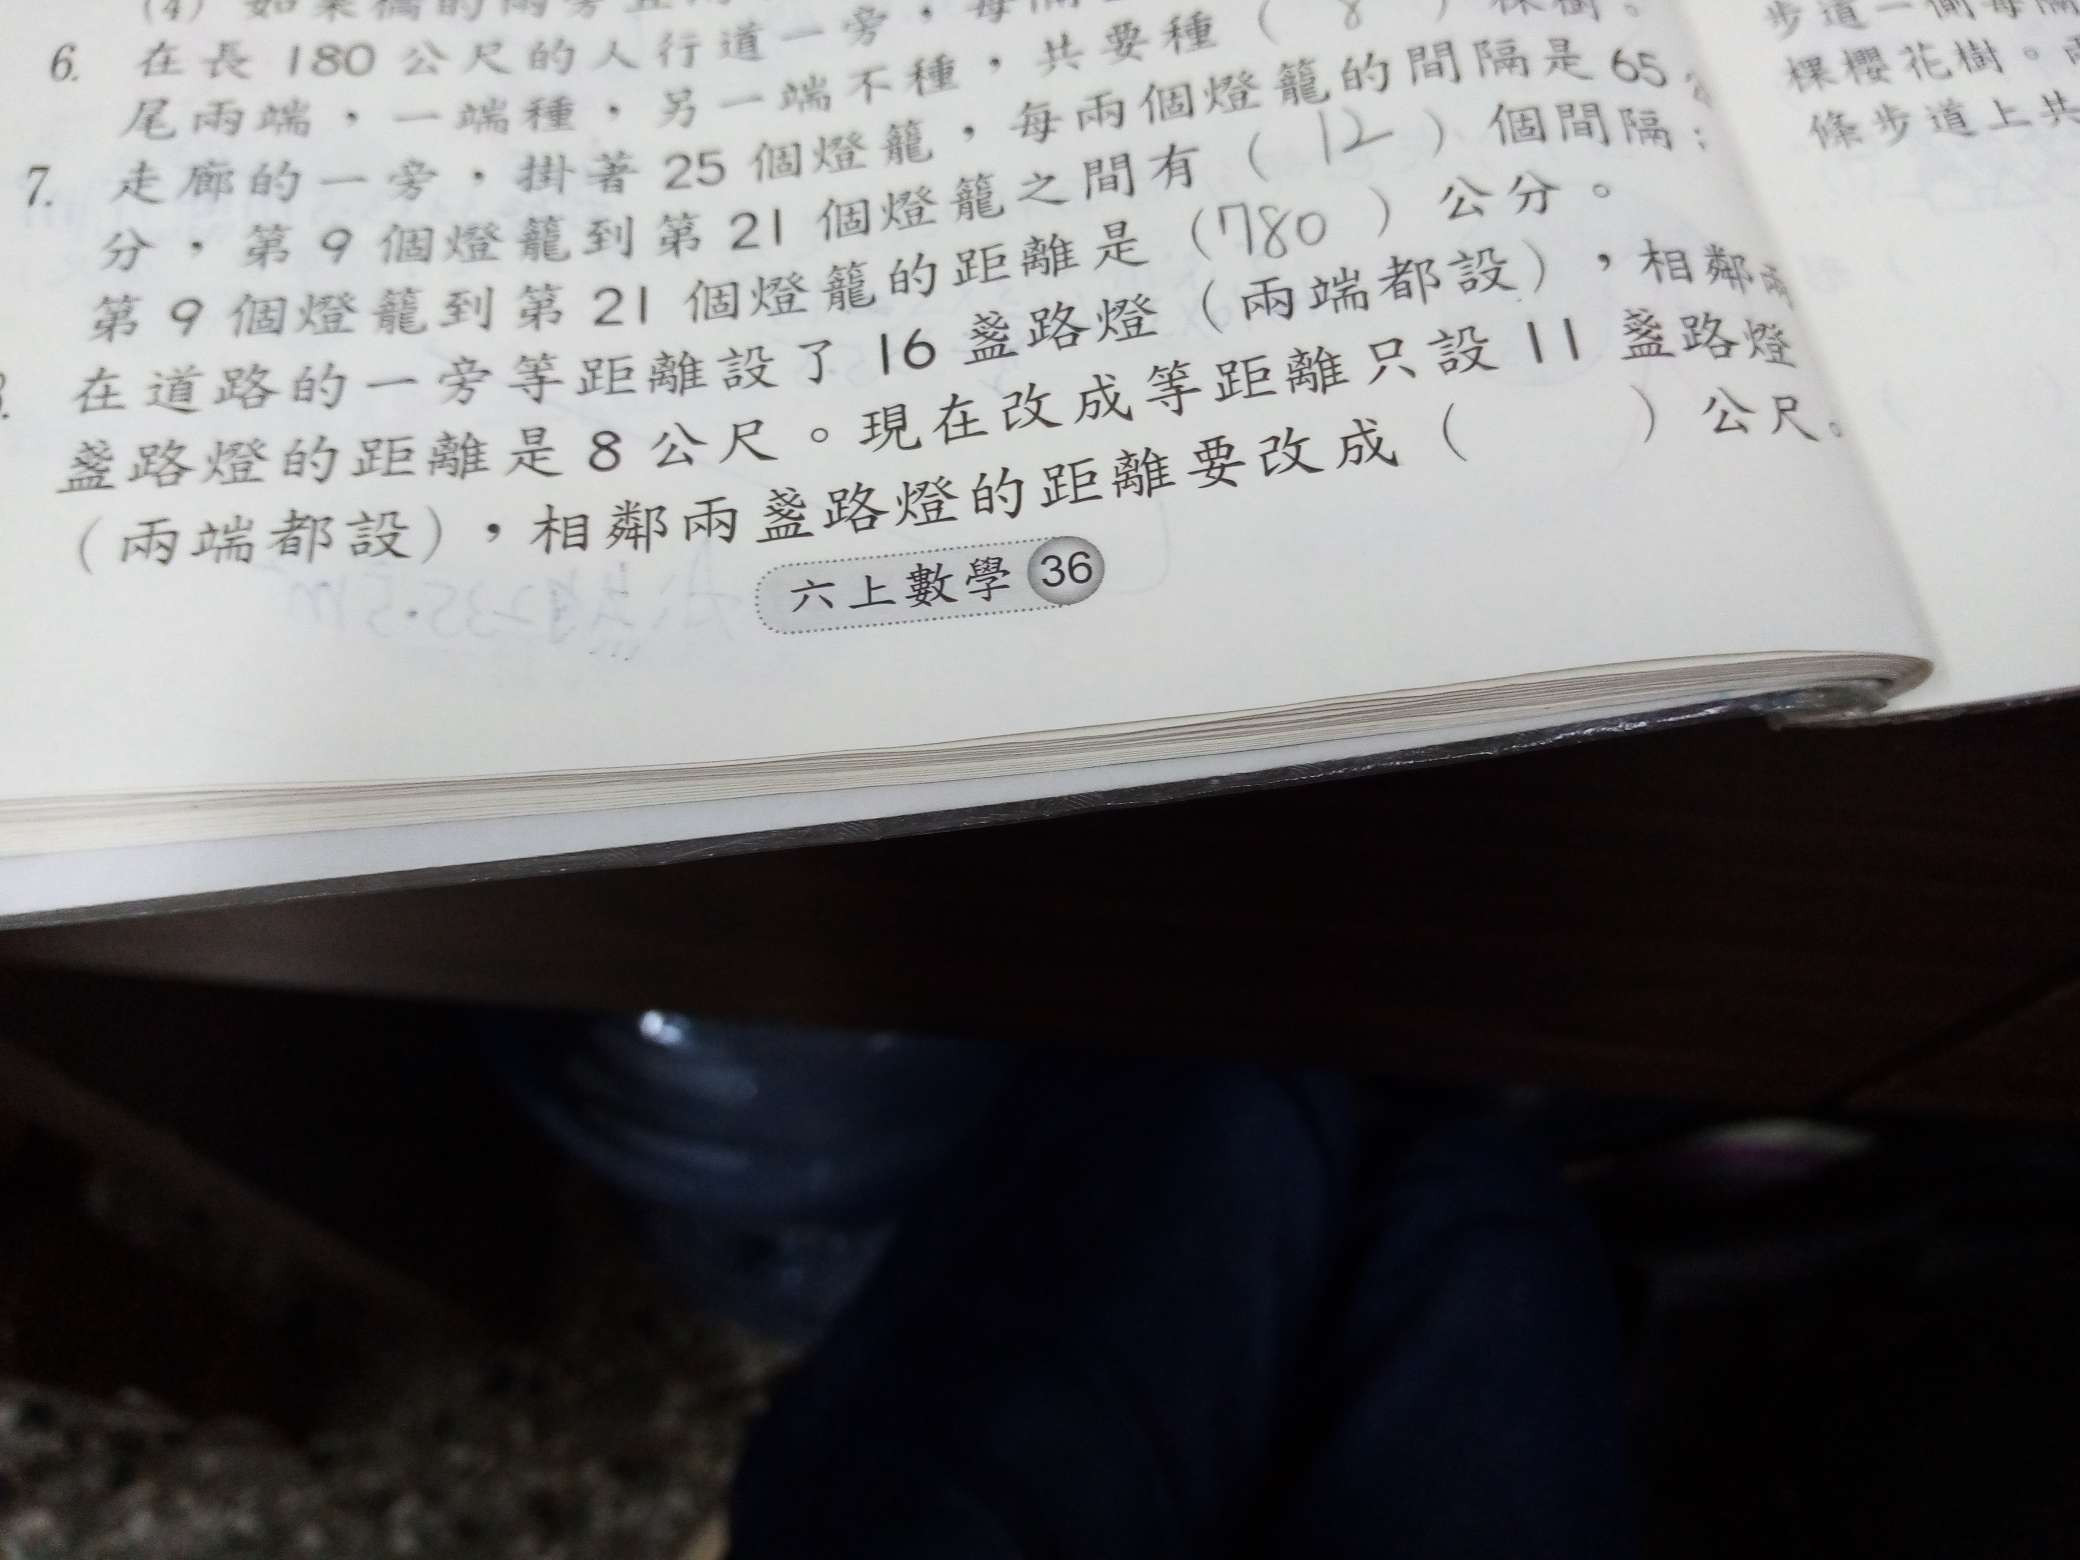 (4) 如果橋的兩旁
步道一側每隔
6. 在長 180 公尺的人行道一旁，每隔
尾兩端，一端種，另一端不種，共要種（ 8 ）棵樹。
棵櫻花樹。
7. 走廊的一旁，掛著 25 個燈籠，每兩個燈籠的間隔是 65
條步道上共
分，第 9 個燈籠到第 21 個燈籠之間有（ 12 ）個間隔；
第 9 個燈籠到第 21 個燈籠的距離是（780 ）公分。
在道路的一旁等距離設了 16 盞路燈（兩端都設），相鄰兩
盞路燈的距離是 8 公尺。現在改成等距離只設 11 盞路燈
（兩端都設），相鄰兩盞路燈的距離要改成（ ）公尺。
六上數學 36